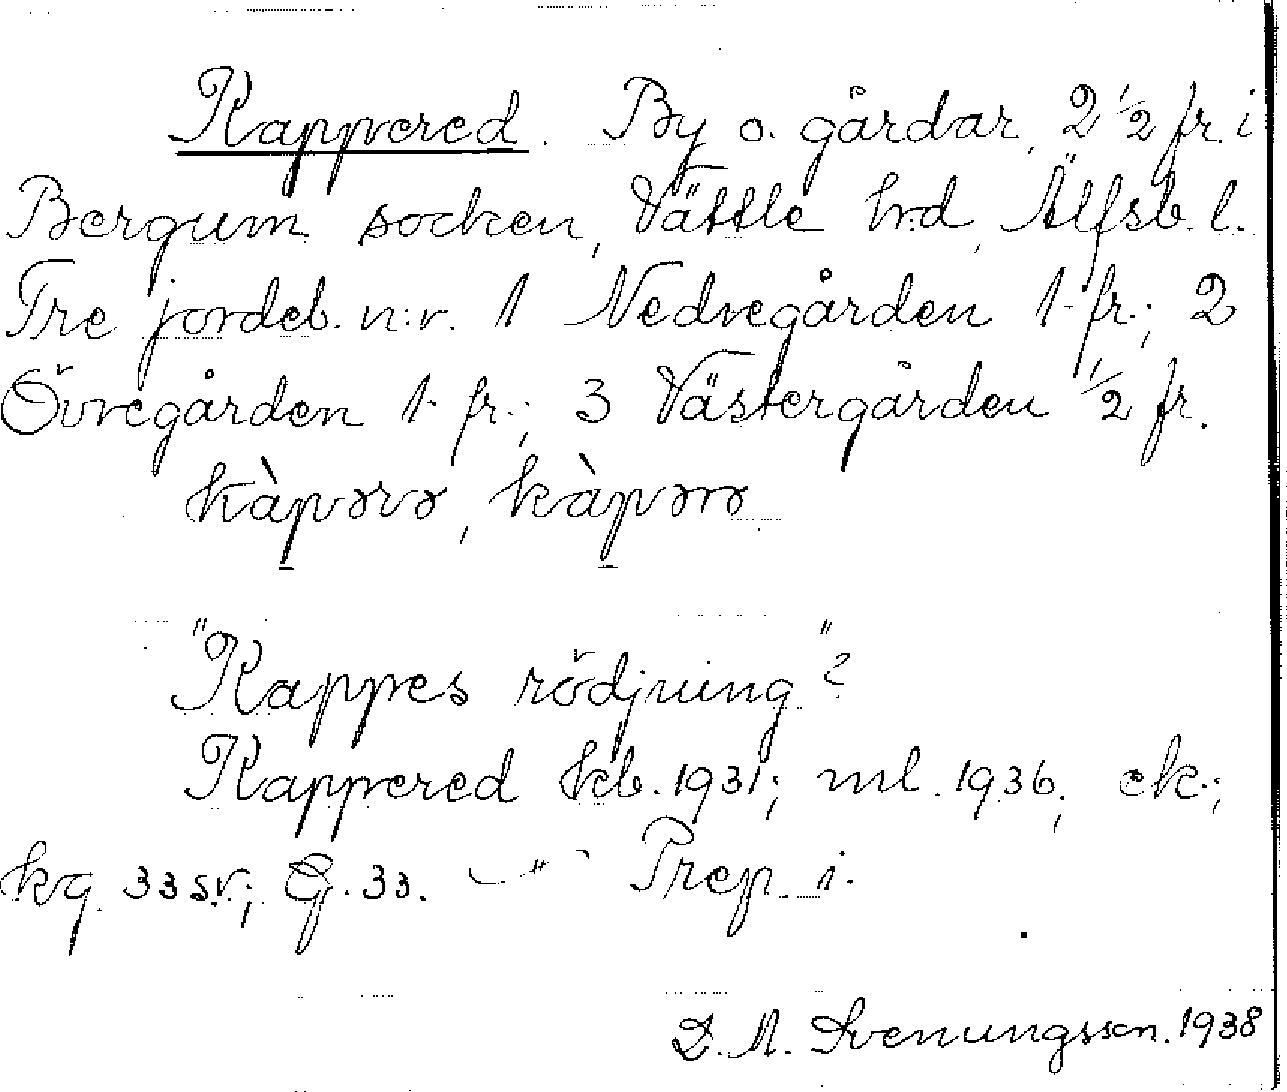 Kappered. By o. gårdar, 2 1/2 fr. i
Bergum socken, Vättle hd, Älfsb. l.
Tre jordeb. n:r. 1 Nedregården 1 fr.; 2
Övregården 1 fr.; 3 Västergården 1/2 fr.
kàpərə, kàpərə
"Kappes rödjning"?
Kappered kb. 1931; ml. 1936; ek.;
kg 33 sv; G. 33. — " — Prep i.
D. A. Svenungsson. 1938